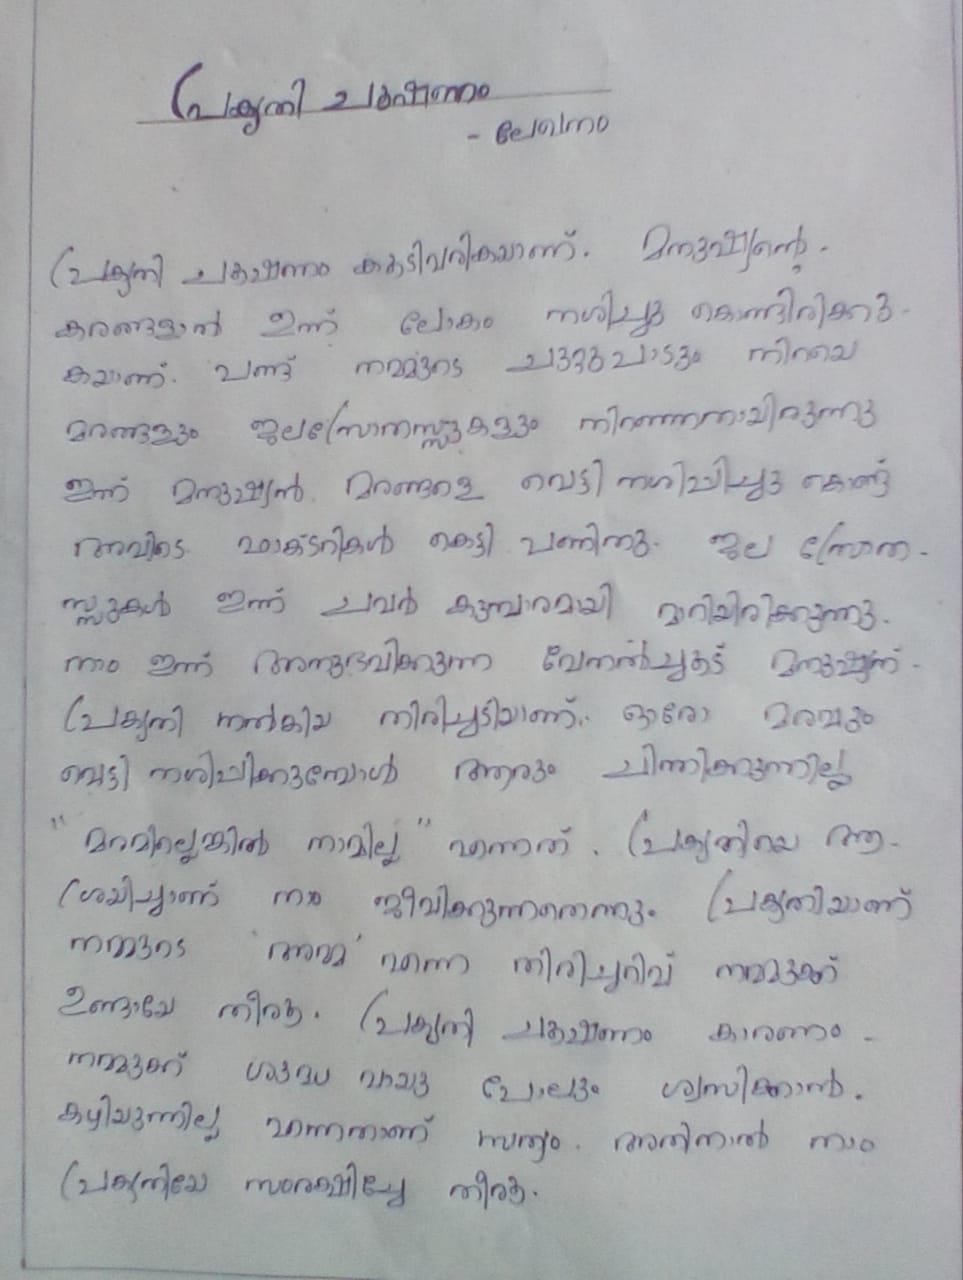 പ്രകൃതി ചൂഷണം
- ലേഖനം
പ്രകൃതി ചൂഷണം കൂടിവരികയാണ്. മനുഷ്യന്റെ
കരങ്ങളാൽ ഇന്ന് ലോകം നശിച്ചു കൊണ്ടിരിക്കു-
കയാണ്. പണ്ട് നമ്മുടെ ചുറ്റുപാടും നിറയെ
മരങ്ങളും ജലസ്രോതസ്സുകളും നിറഞ്ഞതായിരുന്നു
ഇന്ന് മനുഷ്യൻ മരങ്ങളെ വെട്ടി നശിപ്പിച്ചു കൊണ്ട്
അവിടെ ഫാക്ടറികൾ കെട്ടി പണിതു. ജല സ്രോത-
സ്സുകൾ ഇന്ന് ചവർ കൂമ്പാരമായി മാറിയിരിക്കുന്നു.
നാം ഇന്ന് അനുഭവിക്കുന്ന വേനൽച്ചൂട് മനുഷ്യന്-
പ്രകൃതി നൽകിയ തിരിച്ചടിയാണ്. ഓരോ മരവും
വെട്ടി നശിപ്പിക്കുമ്പോൾ ആരും ചിന്തിക്കുന്നില്ല
"മരമില്ലെങ്കിൽ നാമില്ല" എന്നത്. പ്രകൃതിയെ ആ-
ശ്രയിച്ചാണ് നാം ജീവിക്കുന്നതെന്നും. പ്രകൃതിയാണ്
നമ്മുടെ 'അമ്മ' എന്ന തിരിച്ചറിവ് നമ്മുക്ക്
ഉണ്ടായേ തീരൂ. പ്രകൃതി ചൂഷണം കാരണം -
നമ്മുക്ക് ശുദ്ധ വായു പോലും ശ്വസിക്കാൻ.
കഴിയുന്നില്ല എന്നതാണ് സത്യം. അതിനാൽ നാം
പ്രകൃതിയേ സംരക്ഷിച്ചേ തീരൂ.